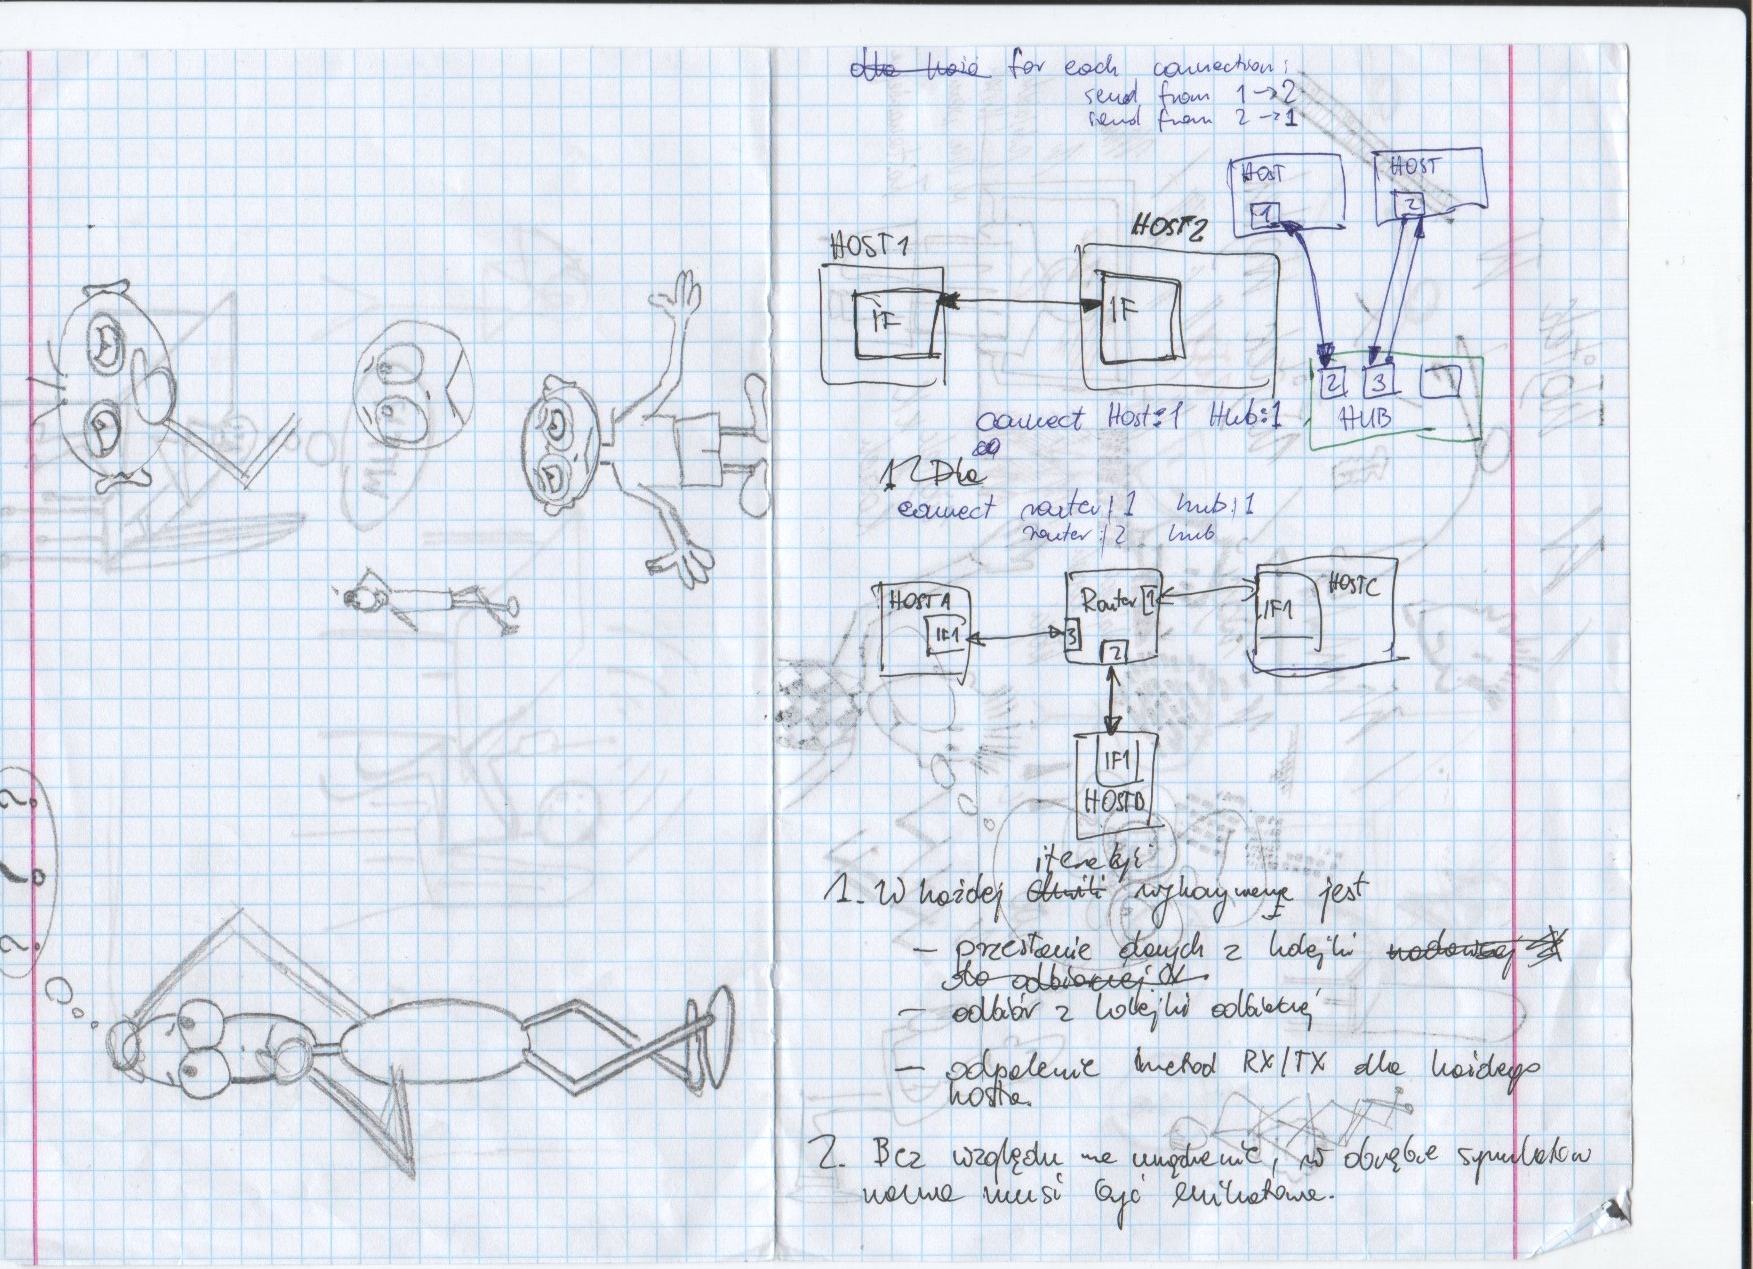 for each connection:
send from 1 → 2
send from 2 → 1
HOST
1
HOST
2
HOST1
IF
HOST2
IF
2 3
HUB
connect Host:1 Hub:1
1 Dla
connect router:1 hub:1
router:2 hub
HOSTA
IF1
Router 1
3
2
HOSTC
IF1
IF1
HOSTB
iteracji
1. W każdej wykonywane jest
– przesłanie danych z kolejki
do odbiorczej
– odbiór z kolejki
– odpalenie metod RX/TX dla każdego
hosta.
2. Bez względu na urządzenie, w obrębie symulatora
nazwa musi być unikatowa.
? ? ?
? ?